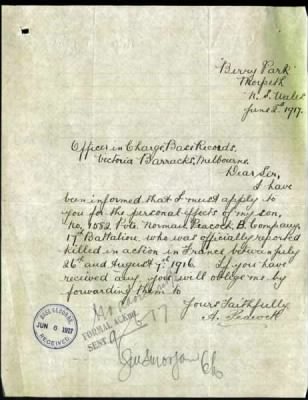 "Berry Park"
Morpeth
N. S. Wales
June 2nd 1917.
Officer in Charge, Base Records,
Victoria Barracks, Melbourne.
Dear Sir,
I have
been informed that I must apply to
you for the personal effects of my son,
No. 1082 Pte. Norman Peacock, B. Company,
17th Battalion, who was officially reported
killed in action in France, between July
26th and August 7th, 1916. If you have
received any you will oblige me by
forwarding them to
Yours Faithfully,
A. Peacock
BASE RECORDS
JUN 6 1917
RECEIVED
FORMAL ACKN.
SENT 9/6/17